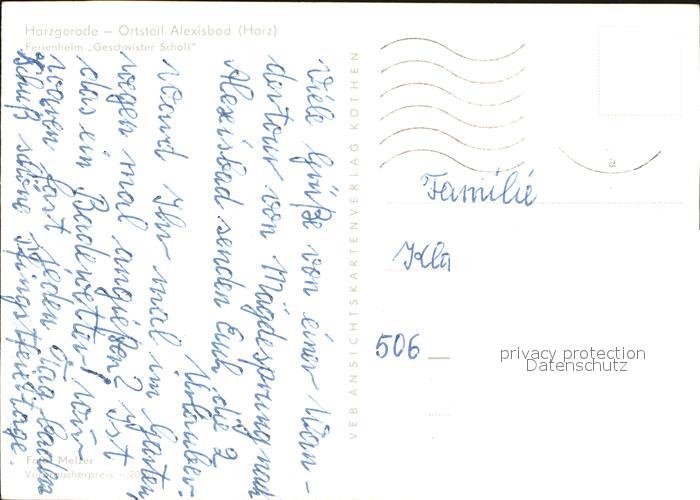 Harzgerode – Ortsteil Alexisbad (Harz)
Ferienheim „Geschwister Scholl"
Viele Grüße von einer Wan-
dertour von Mägdesprung nach
Alexisbad senden Euch die 2
Urlauber.
Ward Ihr mal im Garten,
wegen mal angießen? Ist
das ein Badewetter! Wir
waren fast jeden Tag baden
Schöne Pfingstfeiertage.
Foto: Melzer
Verbraucherpreis
VEB ANSICHTSKARTENVERLAG KÖTHEN
a
Familie
Kla
506
privacy protection
Datenschutz